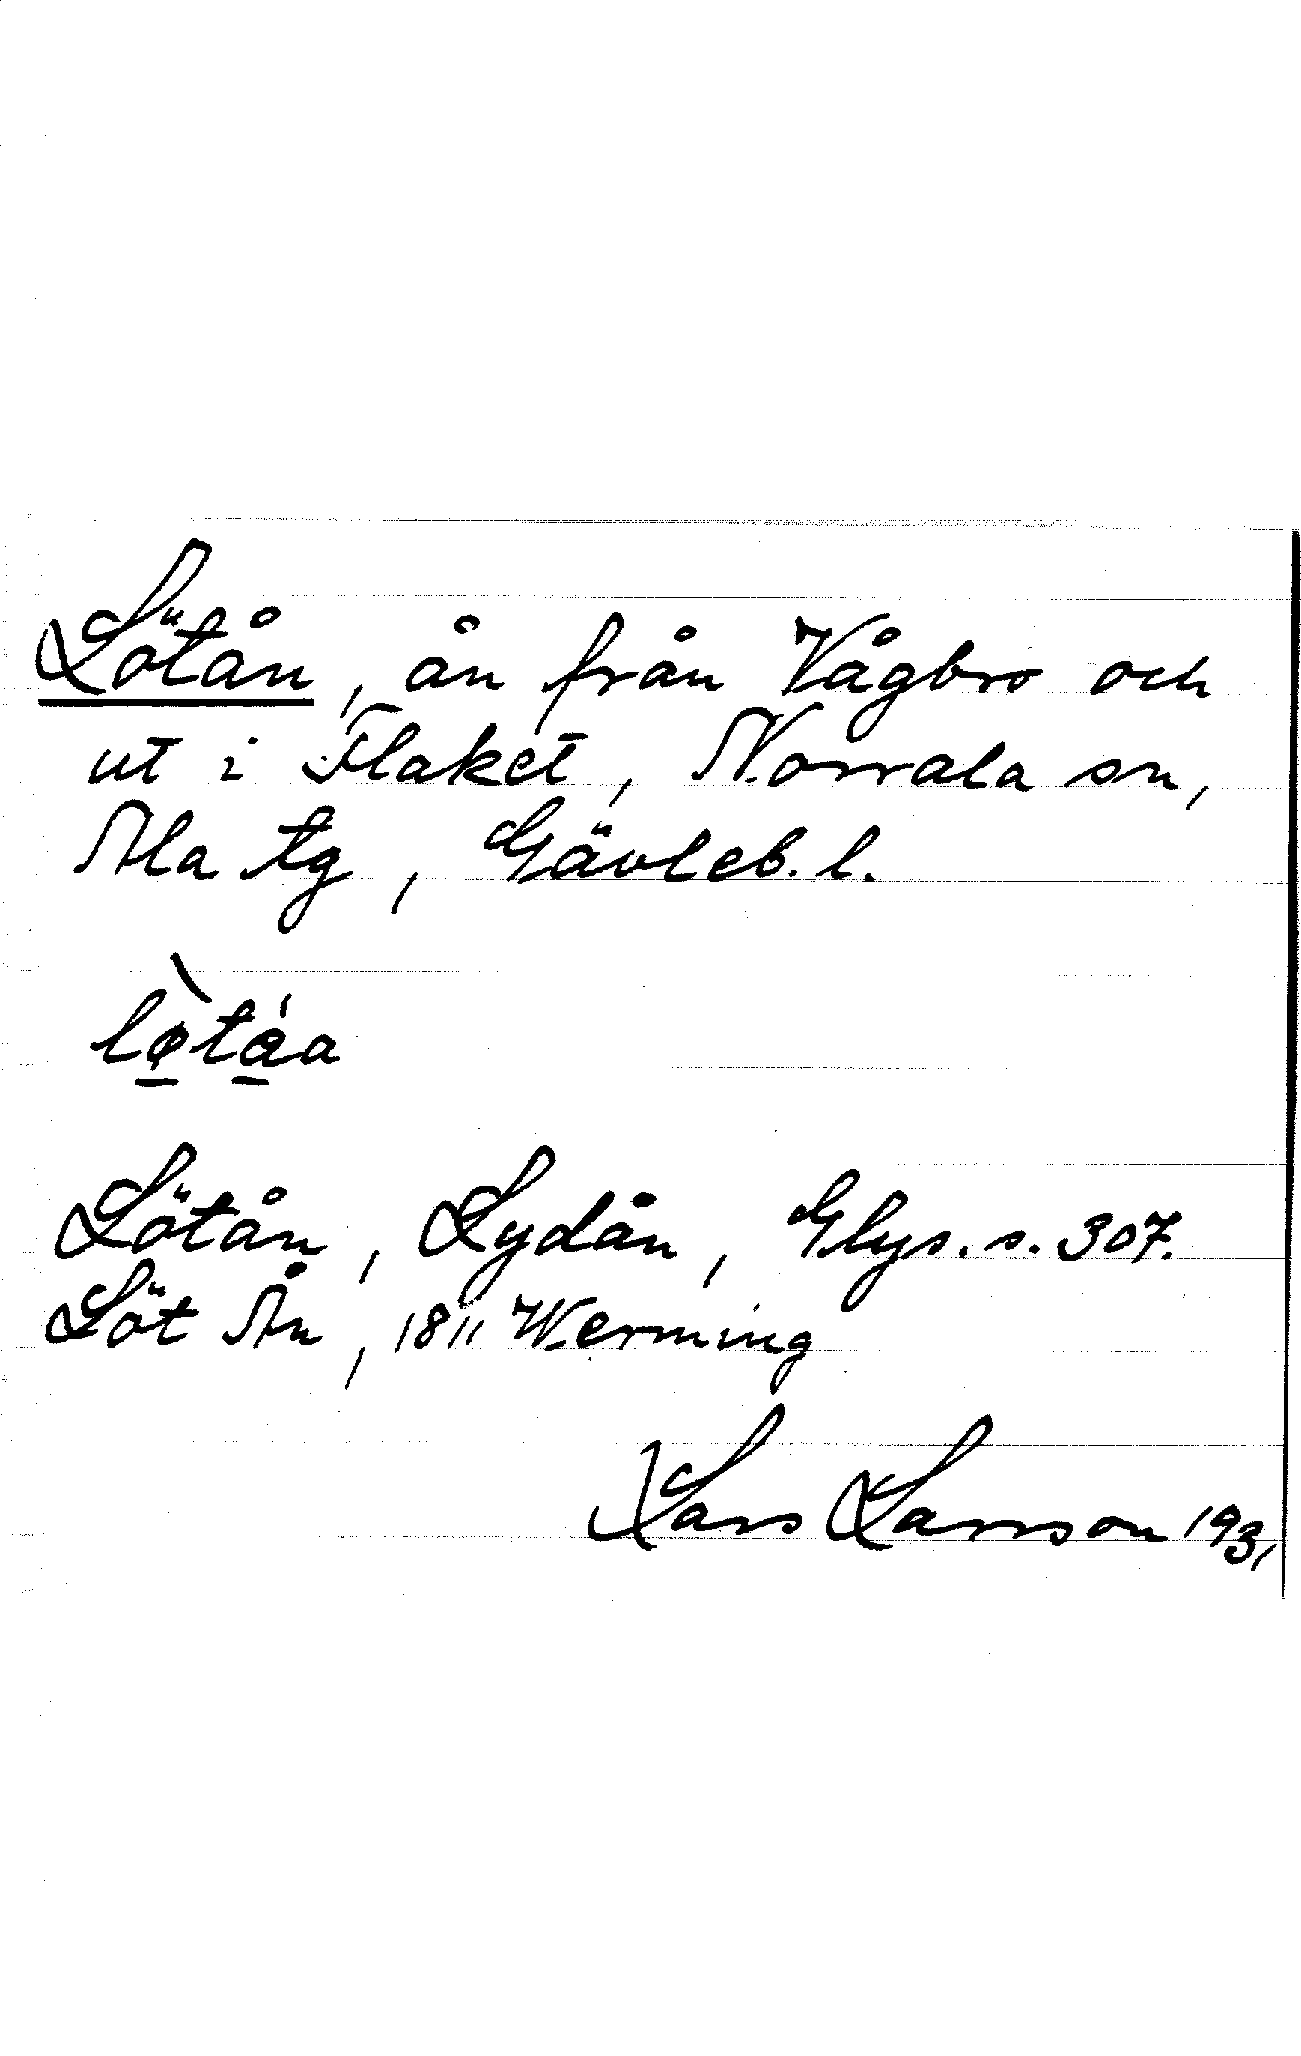 Lötån, ån från Vågbro och
ut i Flaket, Norrala sn,
Ala tg, Gävleb. l.
lø̱̀tá̱a
Lötån, Lydån, Glys. s. 307.
Löt Ån, 1811 Werming
Lars Larsson 1931